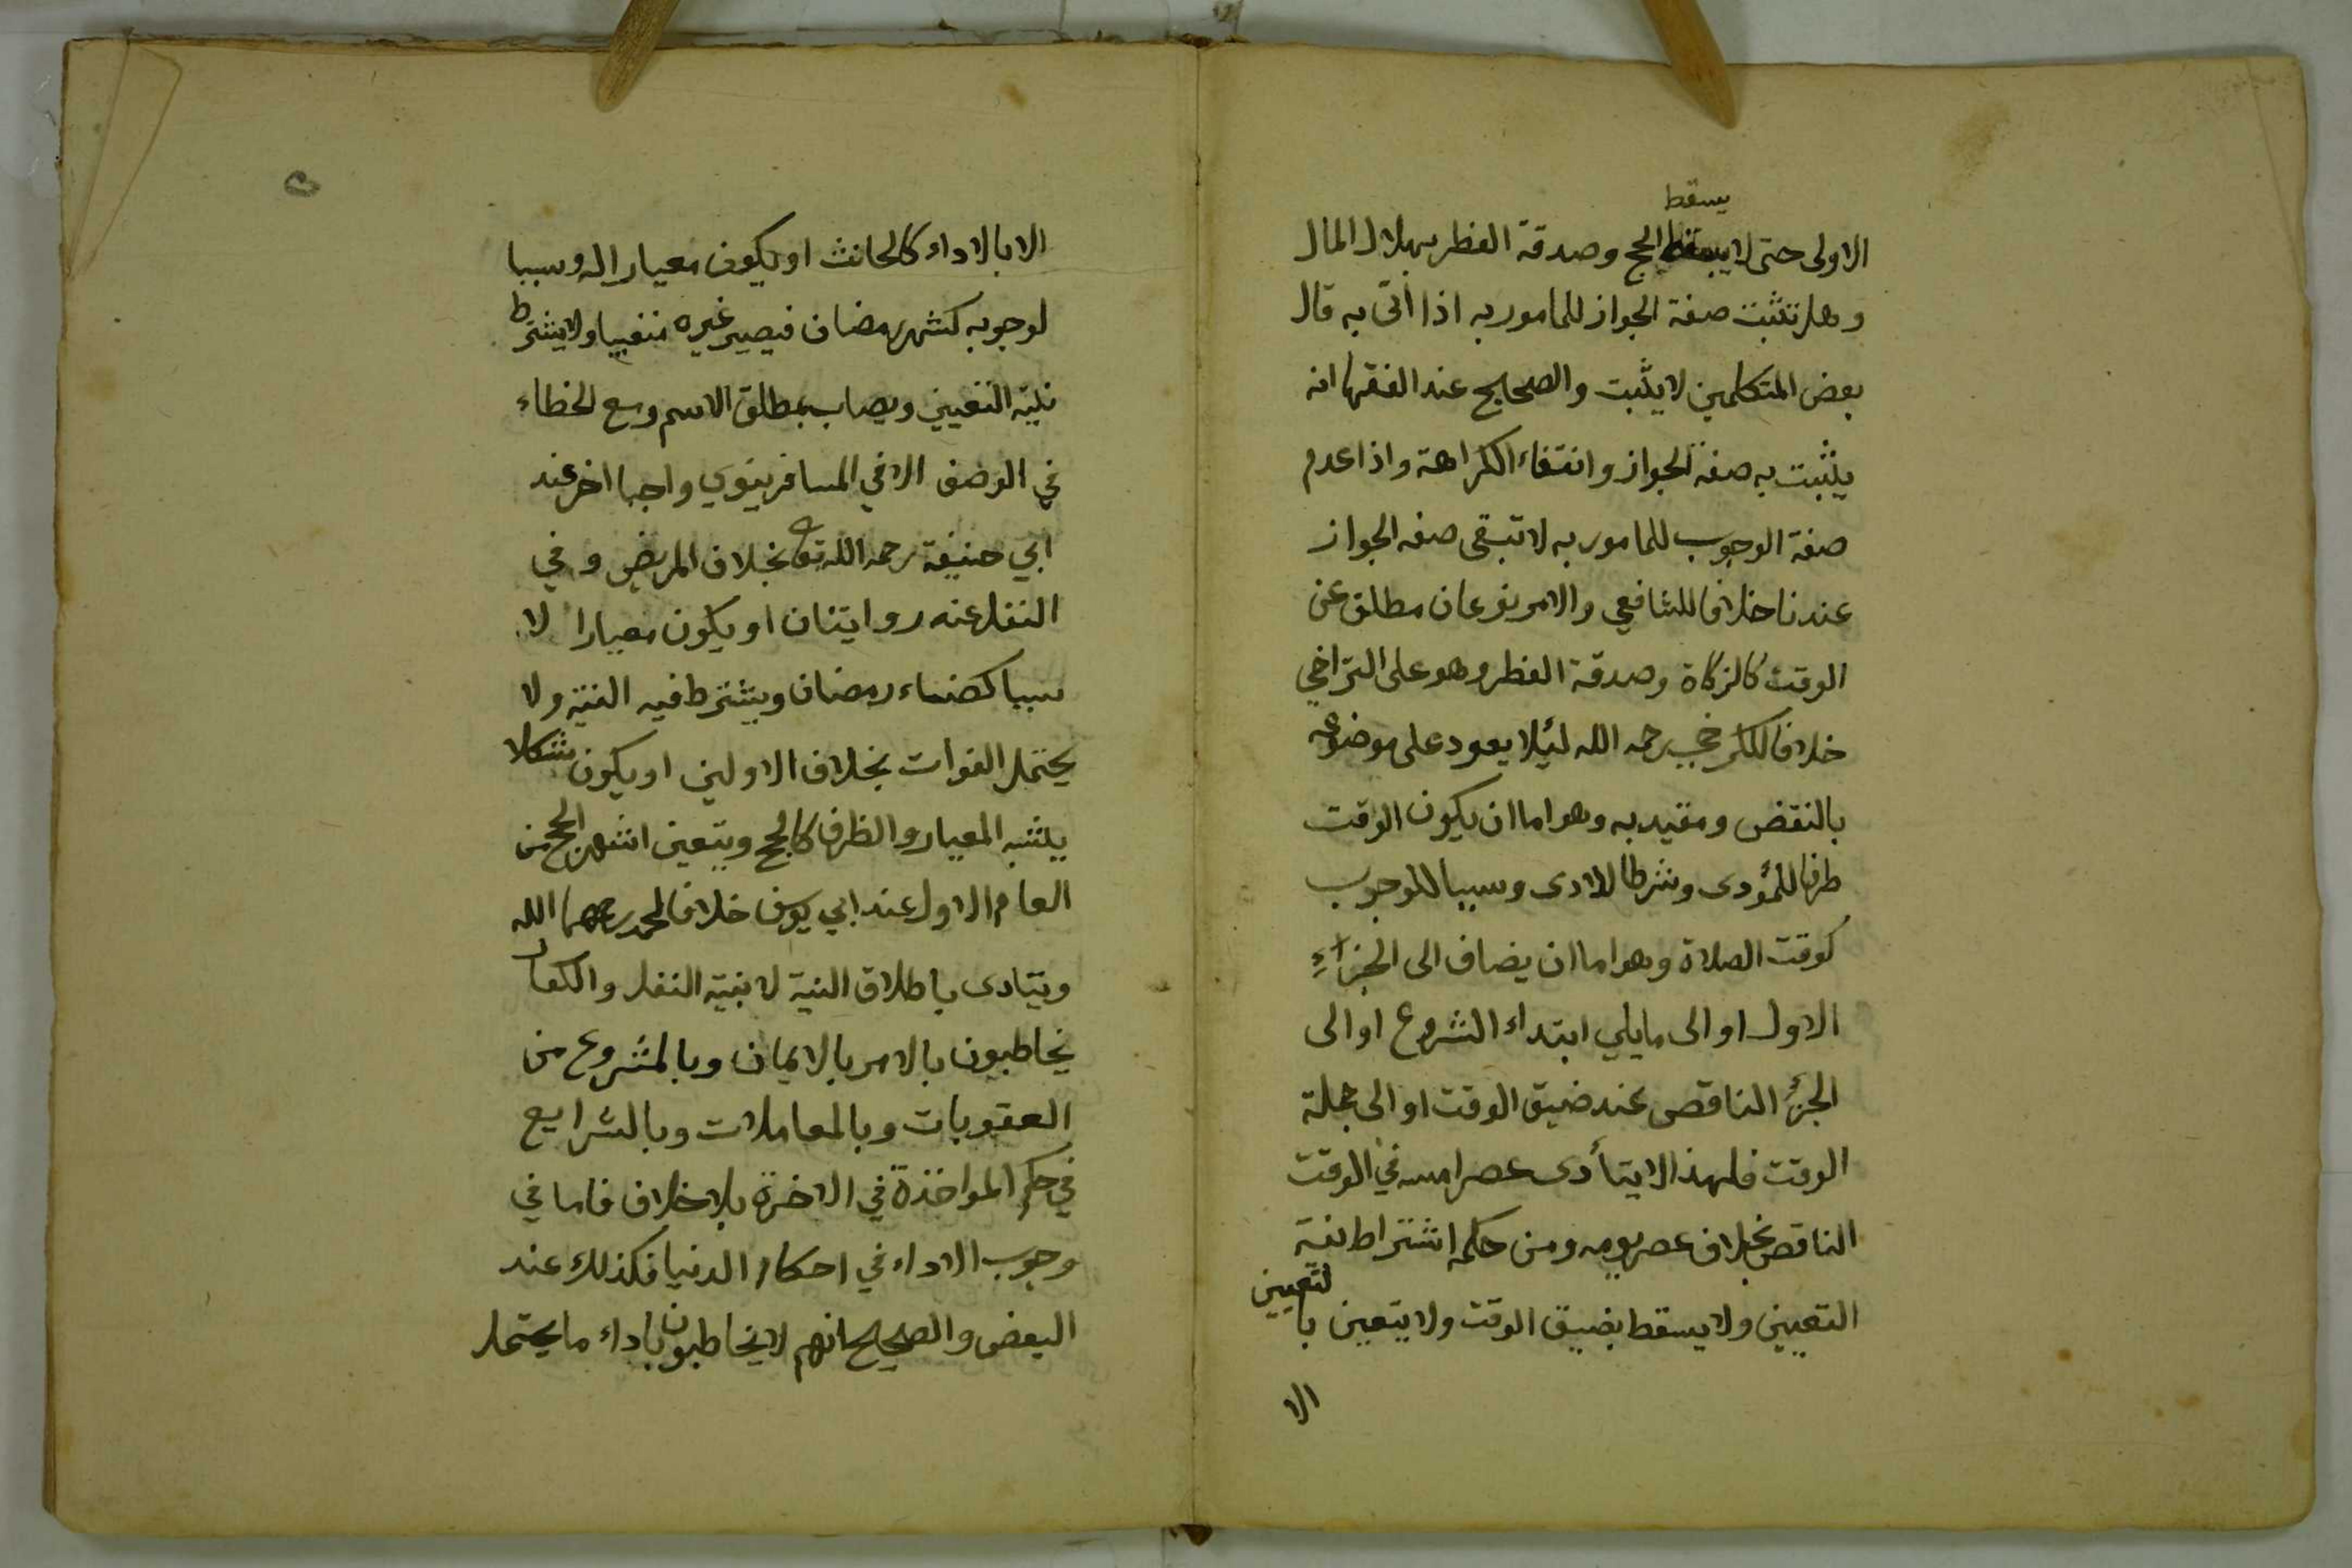 يسقط
الاولى حتى لا يسقط الحج وصدقة الفطر بهلاك المال
وهل تثبت صفة الجواز للمامور به اذا أتى به قال
بعض المتكلمين لا يثبت والصحيح عند الفقها انه
يثبت به صفة الجواز وانتفاء الكراهة واذا عدم
صفة الوجوب للمامور به لا تبقى صفه الجواز
عندنا خلافا للشافعي والامر نوعان مطلق عن
الوقت كالزكاة وصدقة الفطر وهو على التراخي
خلافا للكرخي رحمه الله لئلا يعود على موضوعه
بالنقض ومقيد به وهو اما ان يكون الوقت
ظرفا للمؤدى وشرطا للادى وسببا للوجوب
كوقت الصلاة وهو اما ان يضاف الى الجزاء
الاول او الى ما يلي ابتداء الشروع او الى
الجزء الناقص عند ضيق الوقت او الى جملة
الوقت فلهذا لا يتأدى عصر امسه في الوقت
الناقص بخلاف عصر يومه ومن حكمه اشتراط نية
التعيين ولا يسقط بضيق الوقت ولا يتعين بالتعيين
الا
الا بالاداء كالحانث او يكون معيارا له وسببا
لوجوبه كشهر رمضان فيصير غيره منفيا ولا يشترط
نية التعيين ويصاب بمطلق الاسم ومع الخطاء
في الوصف الا في المسافر ينوي واجبا اخر عند
ابي حنيفة رحمه الله تع بخلاف المريض وفي
النفل عنه روايتان او يكون معيارا لا
سببا كقضاء رمضان ويشترط فيه النية ولا
يحتمل الفوات بخلاف الاولين او يكون مشكلا
يشبه المعيار والظرف كالحج ويتعين اشهر الحج من
العام الاول عند ابي يوسف خلافا لمحمد رحمهما الله
ويتادى باطلاق النية لا بنية النفل والكفار
يخاطبون بالامر بالايمان وبالمشروع من
العقوبات وبالمعاملات وبالشرايع
في حكم المواخذة في الاخرة بلا خلاف فاما في
وجوب الاداء في احكام الدنيا فكذلك عند
البعض والصحيح انهم لا يخاطبون باداء ما يحتمل